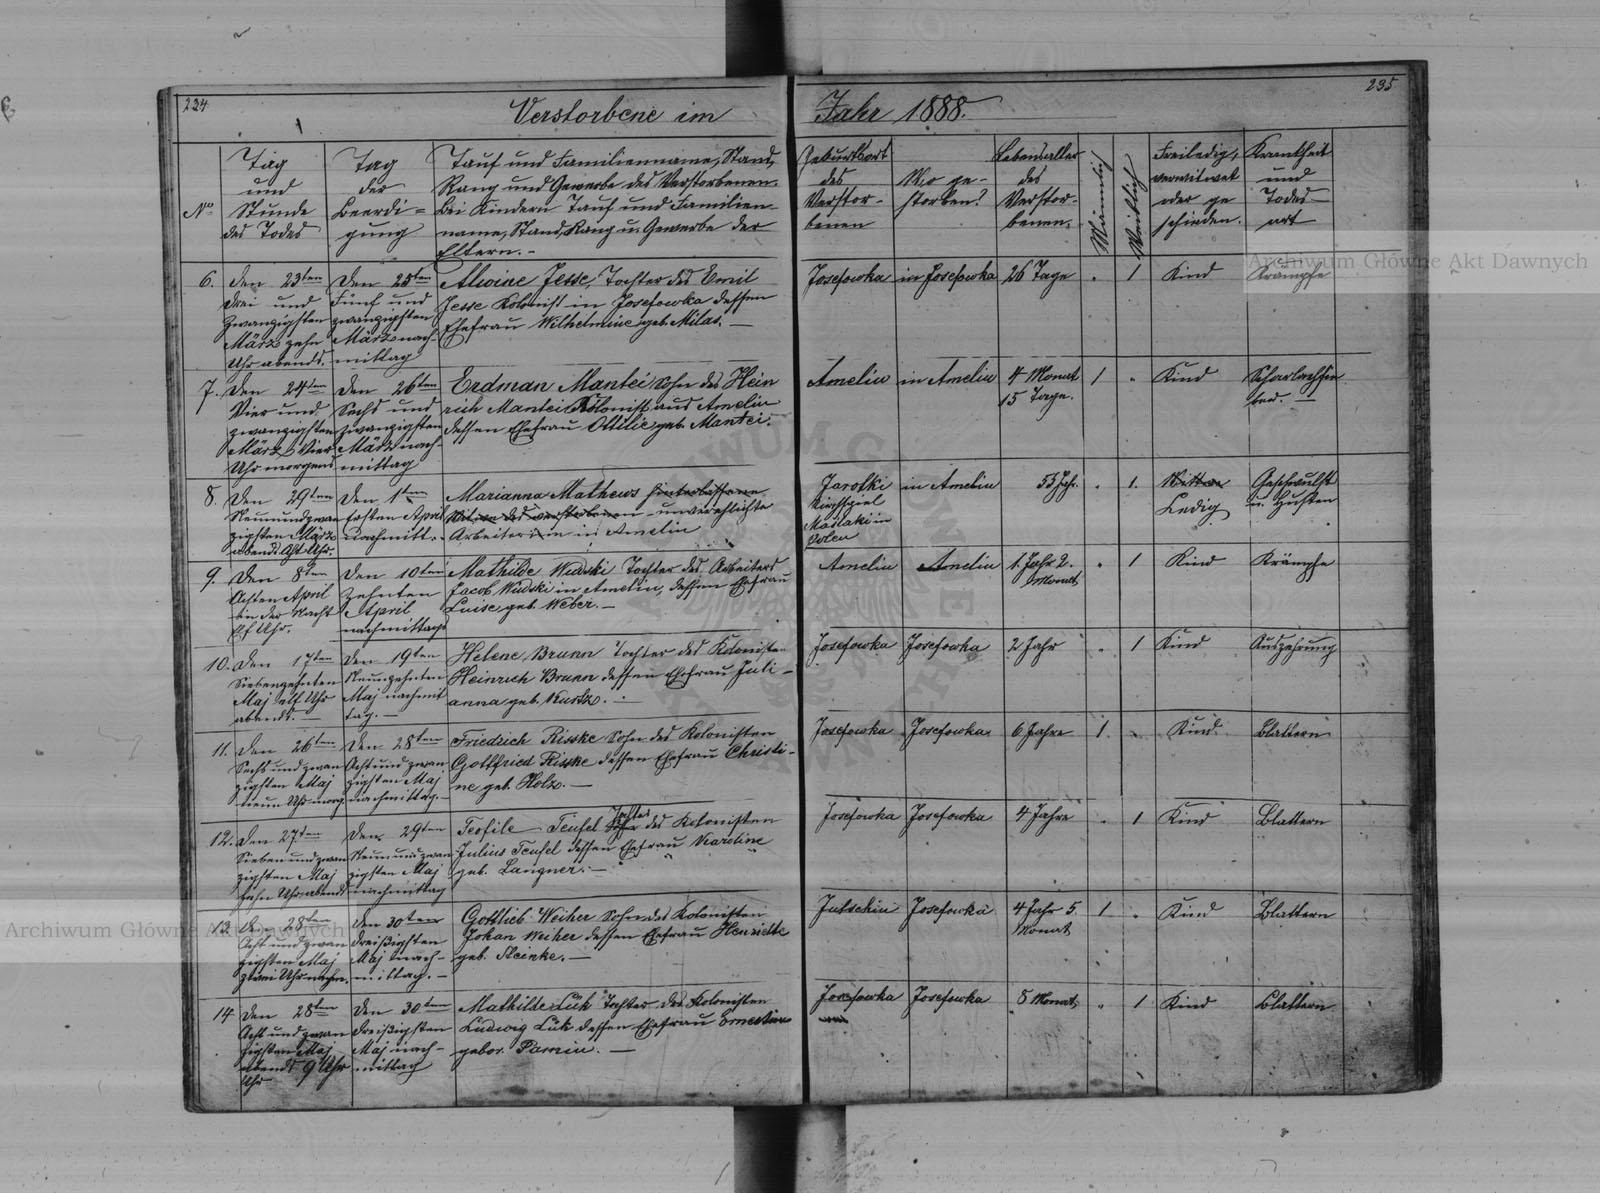 234
Verstorbene im
Jahr 1888.
235
No
Tag
und
Stunde
des Todes
Tag
der
Beerdi=
gung
Tauf und Familienname, Stand,
Rang und Gewerbe des Verstorbenen.
bei Kindern Tauf und Familien-
name, Stand, Rang u. Gewerbe der
Eltern.-
Geburtsort
des
Verstor-
benen
Wo ge-
storben?
Lebensalter
des
Verstor-
benen.
Männlich
Weiblich
Freiledig,
verwitwet
oder ge
schieden.
Krankheit
und
Todes-
art
6.
den 23ten
drei und
zwanzigsten
März zehn
Uhr abends.
Den 25ten
Fünf und
zwanzigsten
März nach-
mittag
Alwine Jesse, Tochter des Emil
Jesse Kolonist in Josefowka dessen
Ehefrau Wilhelmine geb. Milas. —
Josefowka
in Josefowka
26 Tage
1
Kind
Krämpfe
7.
Den 24ten
Vier und
zwanzigsten
März Vier
Uhr morgens
den 26ten
Sechs und
zwanzigsten
März nach-
mittag
Erdman Mantei Sohn des Hein
rich Mantei Kolonist aus Amelin
dessen Ehefrau Ottilie geb. Mantei.
Amelin
in Amelin
4 Monat
15 Tage.
1
Kind
8.
Den 29ten
Neunundzwan
zigsten März
abends Acht Uhr.
den 1ten
Ersten April
nachmitt.
Marianna Mathews hinterlassene
Witwe des verstorbenen - unverehlichte
Arbeiterin in Amelin
Jarolki
Kirchspiel
Maslaki in
Polen
in Amelin
55 Jahr.
1.
Witwe
Ledig
Geschwulst
u. Husten
9.
Den 8ten
Achten April
in der Nacht
Elf Uhr.
den 10ten
Zehnten
April
nachmittags
Mathilde Wudski Tochter des Arbeiters
Jacob Wudski in Amelin, dessen Ehefrau
Luise, geb. Weber. —
Amelin
Amelin
1. Jahr 2.
Monat
1
Kind
Krämpfe
10.
den 17ten
Siebenzehnten
Maj elf Uhr
abends. —
den 19ten
Neunzehnten
Maj nachmit
tag. —
Helene Brunn Tochter des Kolonisten
Heinrich Brunn dessen Ehefrau Juli-
anna geb. Kurtz. —
Josefowka
Josefowka
2 Jahr
1
Kind
Auszehrung
11.
den 26ten
Sechs und zwan
zigsten Maj
neun Uhr morg.
den 28ten
Acht und zwan
zigsten Maj
nachmittag. —
Friedrich Risske Sohn des Kolonisten
Gottfried Risske dessen Ehefrau Christi-
ne geb. Holz. —
Josefowka
Josefowka
6 Jahre
1
Kind
Blattern
12.
den 27ten
Sieben und zwan
zigsten Maj
zehn Uhr abends
den 29ten
Neun und zwan
zigsten Maj
nachmittag
Tochter
Teofile Teufel des Kolonisten
Julius Teufel dessen Ehefrau Karoline
geb. Langner. —
Josefowka
Josefowka
4 Jahre
1
Kind
Blattern
13.
den 28ten
Acht und zwan
zigsten Maj
zwei Uhr nachm.
den 30ten
Dreißigsten
Maj nach-
mittag. —
Gottlieb Weiher Sohn des Kolonisten
Johan Weiher dessen Ehefrau Henriette
geb. Steinke. —
Josefowka
4 Jahr 5.
Monat
1
Kind
Blattern
14
den 28ten
Acht und zwan
zigsten Maj
abends 9 Uhr
Uhr
den 30ten
Dreißigsten
Maj nach-
mittag
Mathilde Lük Tochter des Kolonisten
Ludwig Lük dessen Ehefrau Ernestine
gebor. Pamin. —
Josefowka
Josefowka
8 Monat
1
Kind
Blattern
Archiwum Główne Akt Dawnych
Archiwum Główne Akt Dawnych